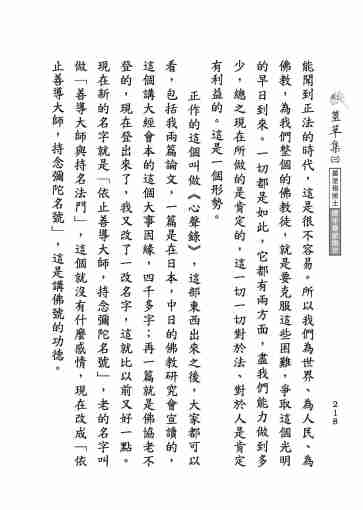 蓳草集(三)
218
能聞到正法的時代，這是很不容易。所以我們為世界、為人民、為
佛教，為我們整個的佛教徒，就是要克服這些困難，爭取這個光明
的早日到來。一切都是如此，它都有兩方面，盡我們能力做到多
少，總之現在所做的是肯定的，這一切一切對於法、對於人是肯定
有利益的。這是一個形勢。
正作的這個叫做《心聲錄》，這部東西出來之後，大家都可以
看，包括我兩篇論文，一篇是在日本，中日的佛教研究會宣讀的，
這個講大經會本的這個大事因緣，四千多字；再一篇就是佛協老不
登的，現在登出來了，我又改了一改名字，這就比以前又好一點。
現在新的名字就是「依止善導大師，持念彌陀名號」，老的名字叫
做「善導大師與持名法門」，這個就沒有什麼感情，現在改成「依
止善導大師，持念彌陀名號」，這是講佛號的功德。